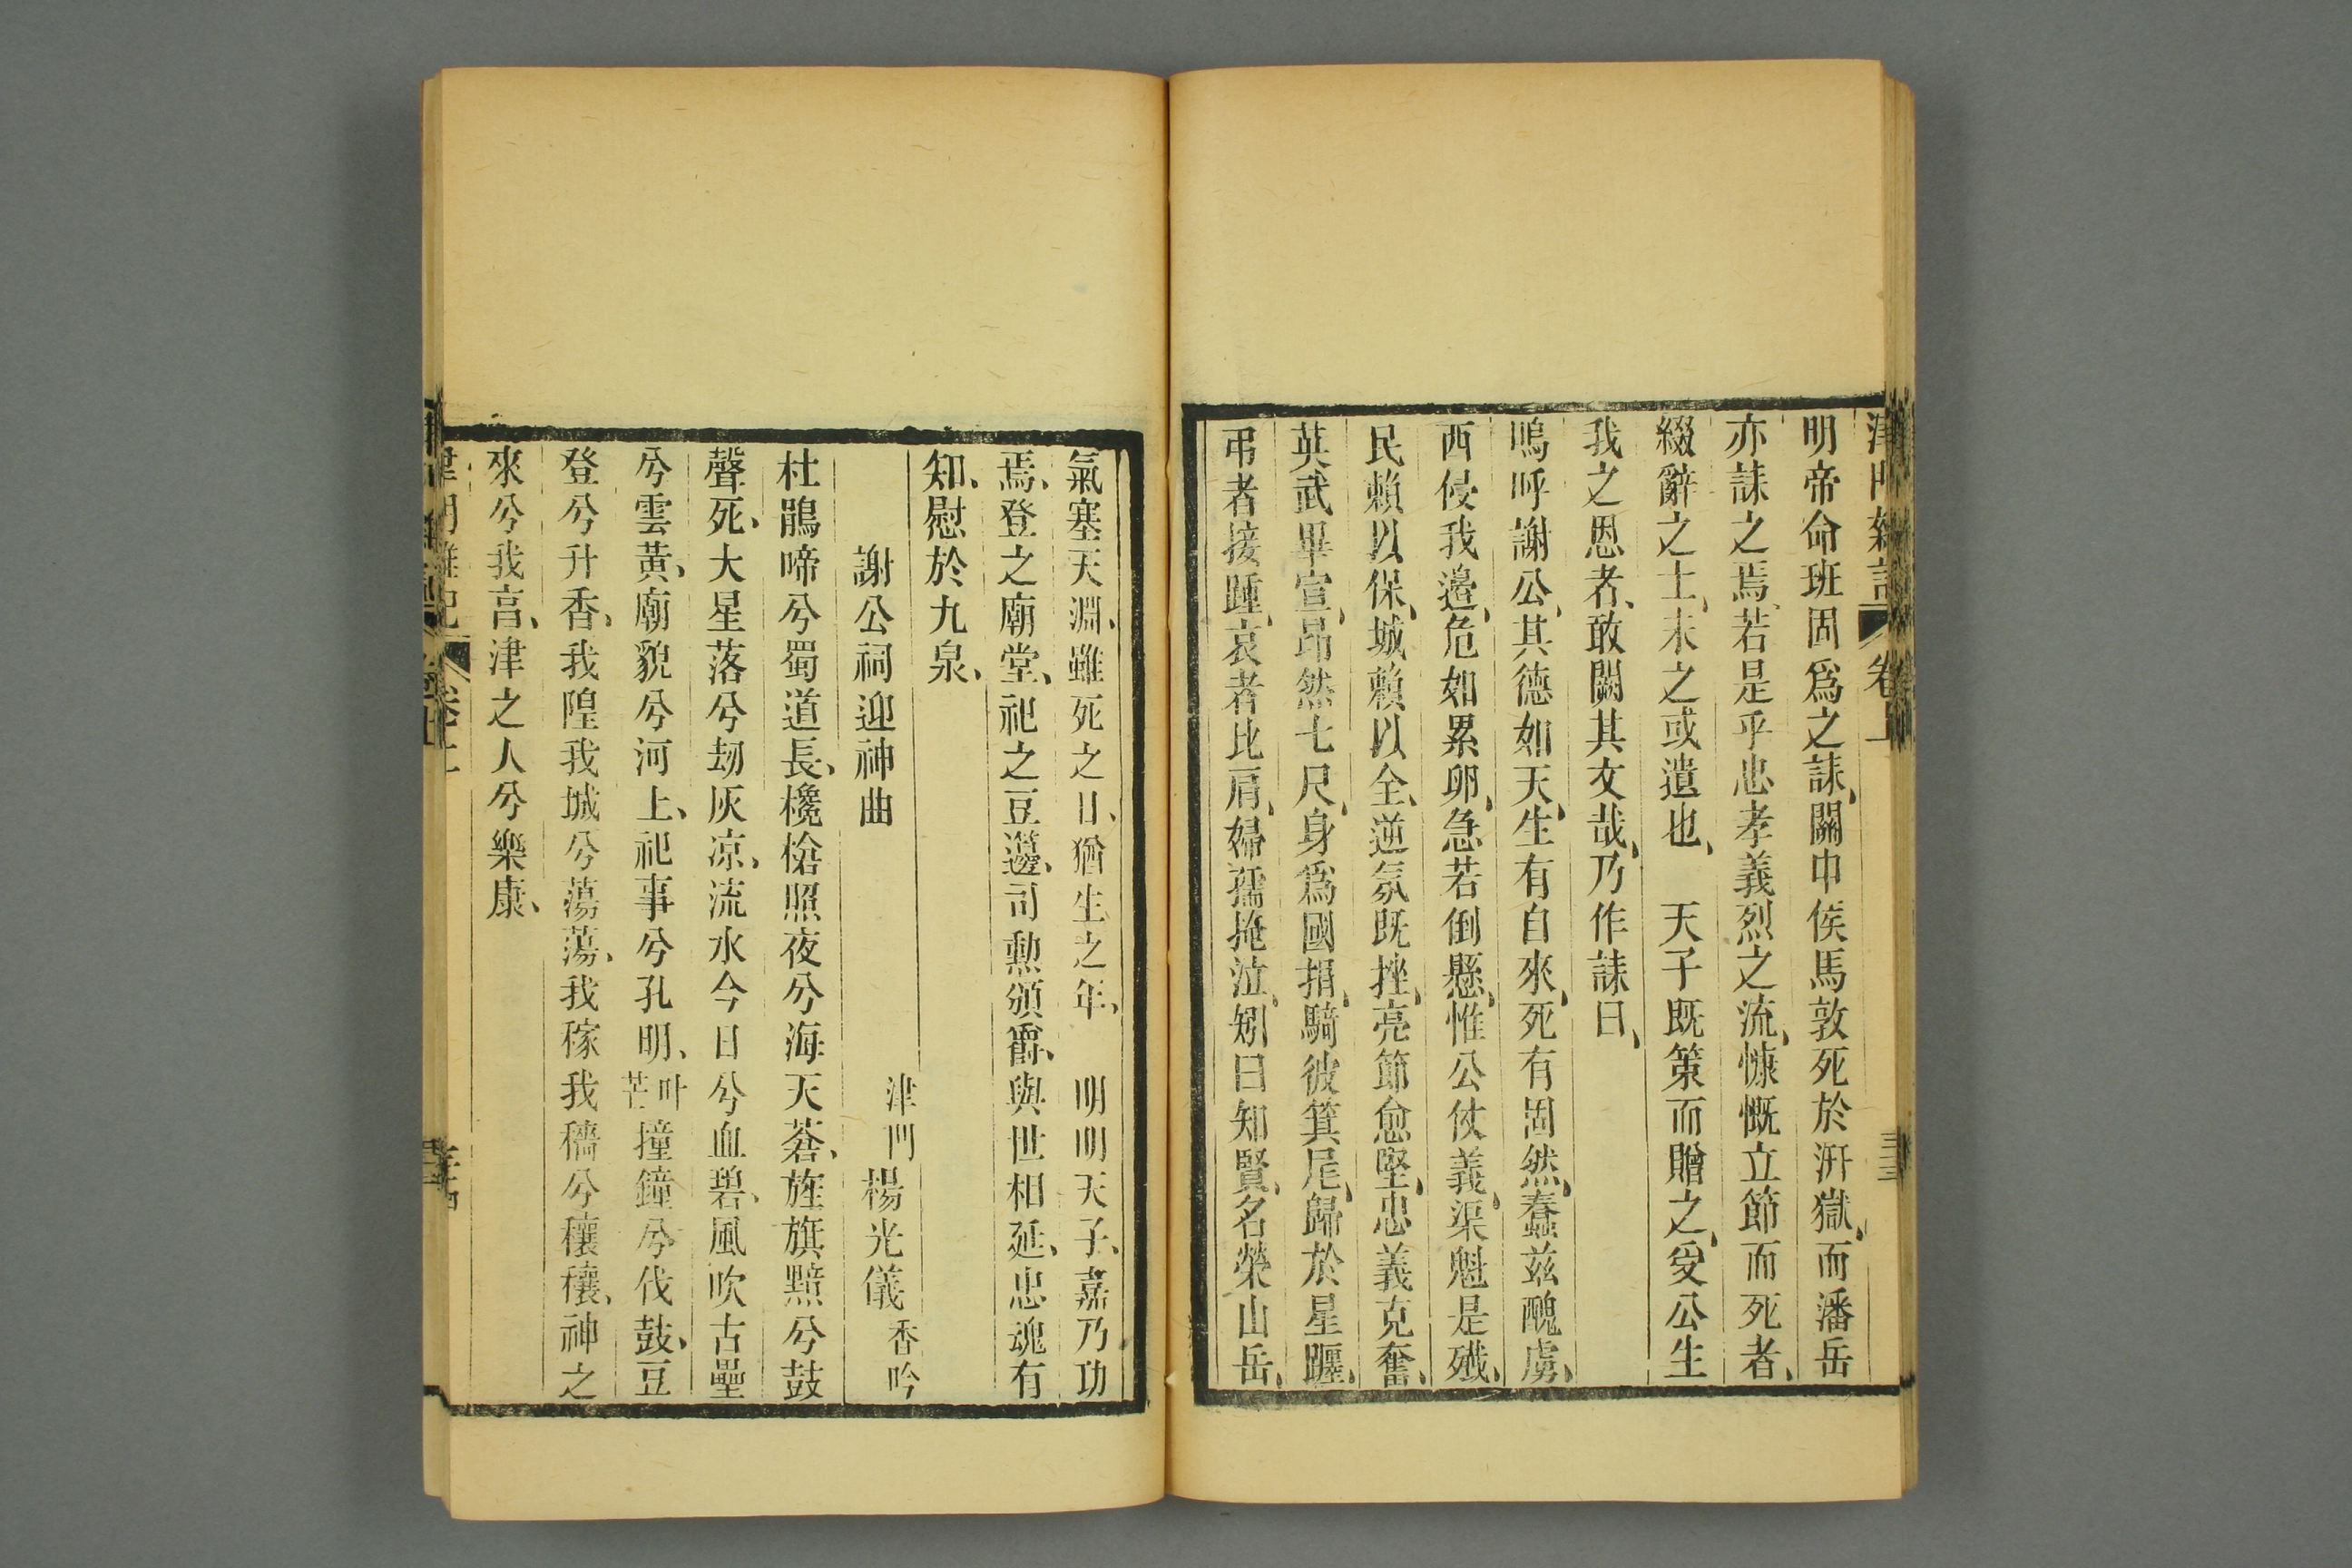 津門雜記 卷上
明帝命班固爲之誄、關中侯馬敦死於汧獄、而潘岳
亦誄之焉、若是乎忠孝義烈之流、慷慨立節而死者、
綴辭之士、未之或遺也、 天子既策而贈之、受公生
我之恩者、敢闕其文哉、乃作誄曰、
嗚呼謝公、其德如天、生有自來、死有固然、蠢兹醜虜、
西侵我邊、危如累卵、急若倒懸、惟公仗義、渠魁是殲、
民賴以保、城賴以全、逆氛既挫、亮節愈堅、忠義克奮、
英武畢宣、昂然七尺、身爲國捐、騎彼箕尾、歸於星躔、
弔者接踵、哀者比肩、婦孺掩泣、矧曰知賢、名榮山岳、
氣塞天淵、雖死之日、猶生之年、 明明天子、嘉乃功
焉、登之廟堂、祀之豆籩、司勲頒爵、與世相延、忠魂有
知、慰於九泉、
謝公祠迎神曲 津門楊光儀香吟
杜鵑啼兮蜀道長、欃槍照夜兮海天蒼、旌旗黯兮鼓
聲死、大星落兮刼灰凉、流水今日兮血碧、風吹古壘
兮雲黃、廟貌兮河上、祀事兮孔明、叶芒撞鐘兮伐鼓、豆
登兮升香、我隍我城兮蕩蕩、我稼我穡兮穰穰、神之
來兮我言、津之人兮樂康、
津門雜記 卷上